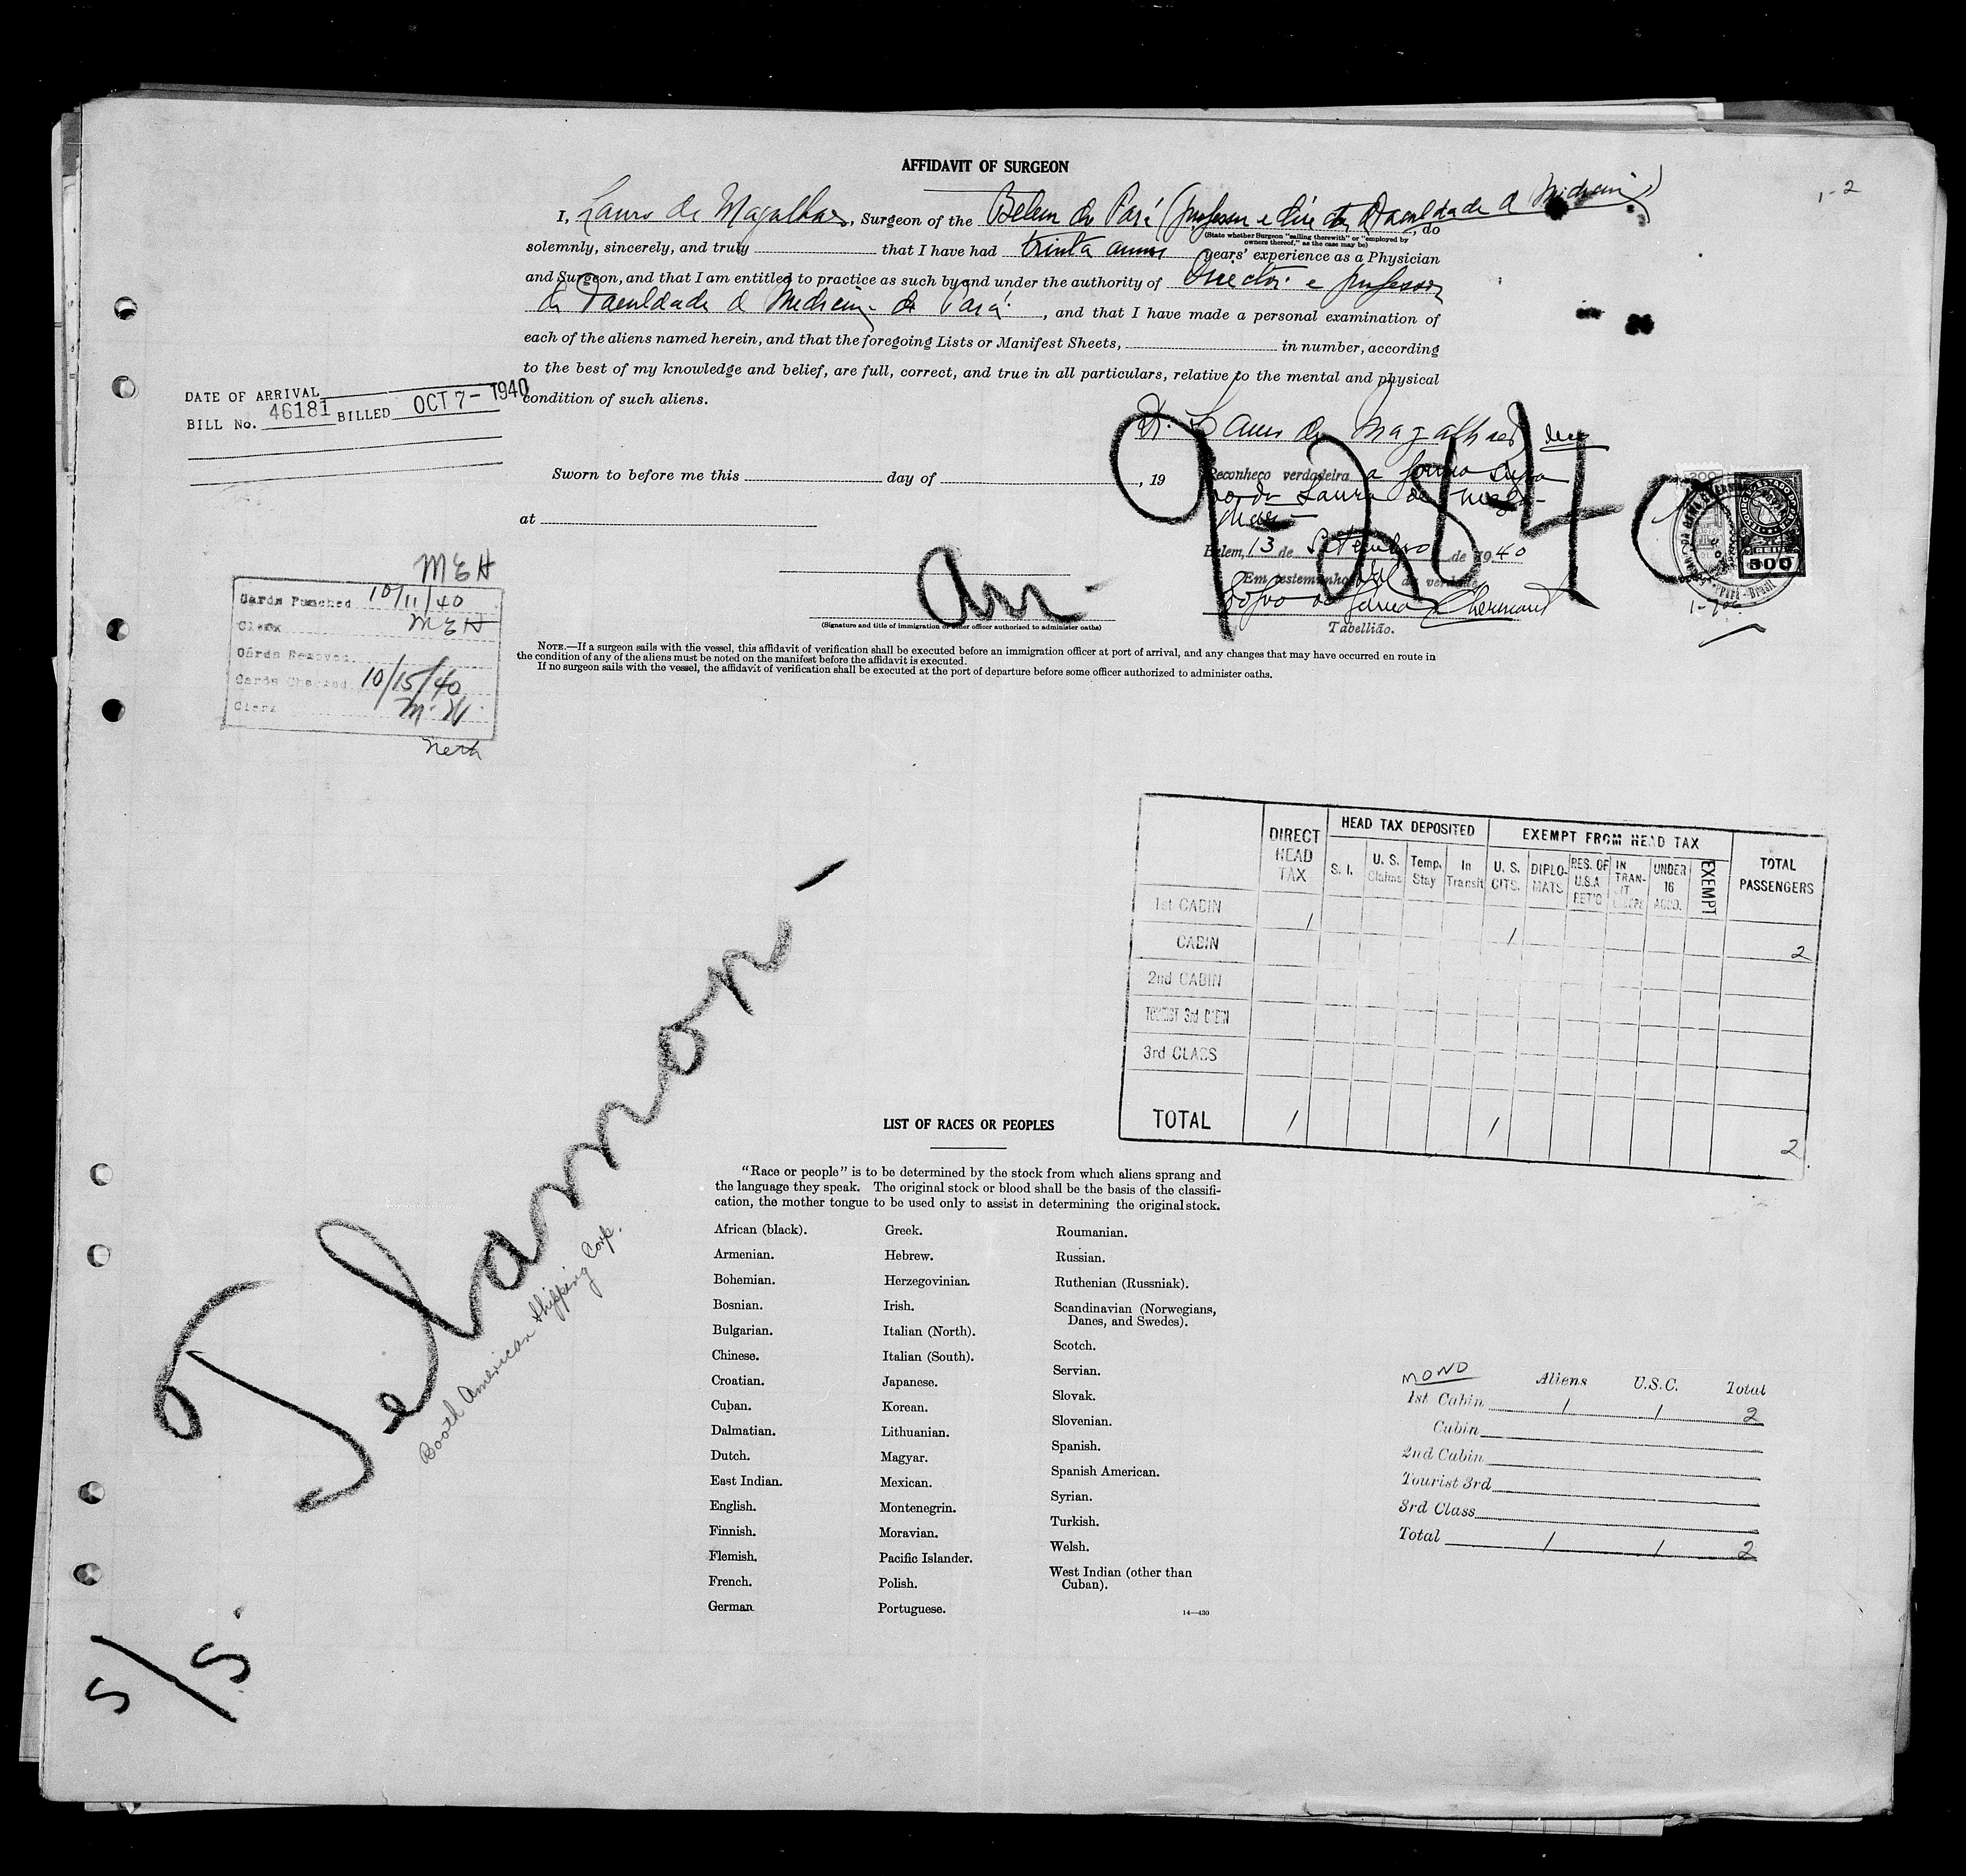 AFFIDAVIT OF SURGEON
1-2
I, Lauro de Magalhães, Surgeon of the Belem do Pará (professor e director da Faculdade de Medicina), do
(State whether Surgeon "sailing therewith" or "employed by owners thereof," as the case may be)
solemnly, sincerely, and truly that I have had trinta annos years' experience as a Physician
and Surgeon, and that I am entitled to practice as such by and under the authority of Director e professor
da Faculdade de Medicina do Pará, and that I have made a personal examination of
each of the aliens named herein, and that the foregoing Lists or Manifest Sheets, in number, according
to the best of my knowledge and belief, are full, correct, and true in all particulars, relative to the mental and physical
condition of such aliens.
DATE OF ARRIVAL
BILL No. 46181 BILLED OCT 7- 1940
Dr. Lauro de Magalhães
Sworn to before me this day of , 19
at
Reconheço verdadeira a firma supra
do dr Lauro de Magalhães
Belem, 13 de Setembro de 1940
Em testemunho da verdade
Chermont
Tabellião.
500
Arr-
(Signature and title of immigration or other officer authorized to administer oaths)
NOTE.—If a surgeon sails with the vessel, this affidavit of verification shall be executed before an immigration officer at port of arrival, and any changes that may have occurred en route in
the condition of any of the aliens must be noted on the manifest before the affidavit is executed.
If no surgeon sails with the vessel, the affidavit of verification shall be executed at the port of departure before some officer authorized to administer oaths.
MEH
Cards Punched 10/11/40
Clerk MEH
Cards Removed
Cards Checked 10/15/40
Clerk M.H.
DIRECT HEAD TAX
HEAD TAX DEPOSITED
EXEMPT FROM HEAD TAX
TOTAL PASSENGERS
S. I.
U. S. Claims
Temp. Stay
In Transit
U. S. CITS.
DIPLO-MATS
RES. OF U.S.A RET'G
IN TRAN-IT
UNDER 16 ACCO.
EXEMPT
1st CABIN 1
CABIN 1 2
2nd CABIN
TOURIST 3rd CABIN
3rd CLASS
TOTAL 1 1 2
S/S. Telamon -
Booth American Shipping Corp.
LIST OF RACES OR PEOPLES
"Race or people" is to be determined by the stock from which aliens sprang and
the language they speak. The original stock or blood shall be the basis of the classifi-
cation, the mother tongue to be used only to assist in determining the original stock.
African (black).
Armenian.
Bohemian.
Bosnian.
Bulgarian.
Chinese.
Croatian.
Cuban.
Dalmatian.
Dutch.
East Indian.
English.
Finnish.
Flemish.
French.
German
Greek.
Hebrew.
Herzegovinian.
Irish.
Italian (North).
Italian (South).
Japanese.
Korean.
Lithuanian.
Magyar.
Mexican.
Montenegrin.
Moravian.
Pacific Islander.
Polish.
Portuguese.
Roumanian.
Russian.
Ruthenian (Russniak).
Scandinavian (Norwegians,
Danes, and Swedes).
Scotch.
Servian.
Slovak.
Slovenian.
Spanish.
Spanish American.
Syrian.
Turkish.
Welsh.
West Indian (other than
Cuban).
14—430
MOND Aliens U.S.C. Total
1st Cabin 1 1 2
Cabin
2nd Cabin
Tourist 3rd
3rd Class
Total 1 1 2